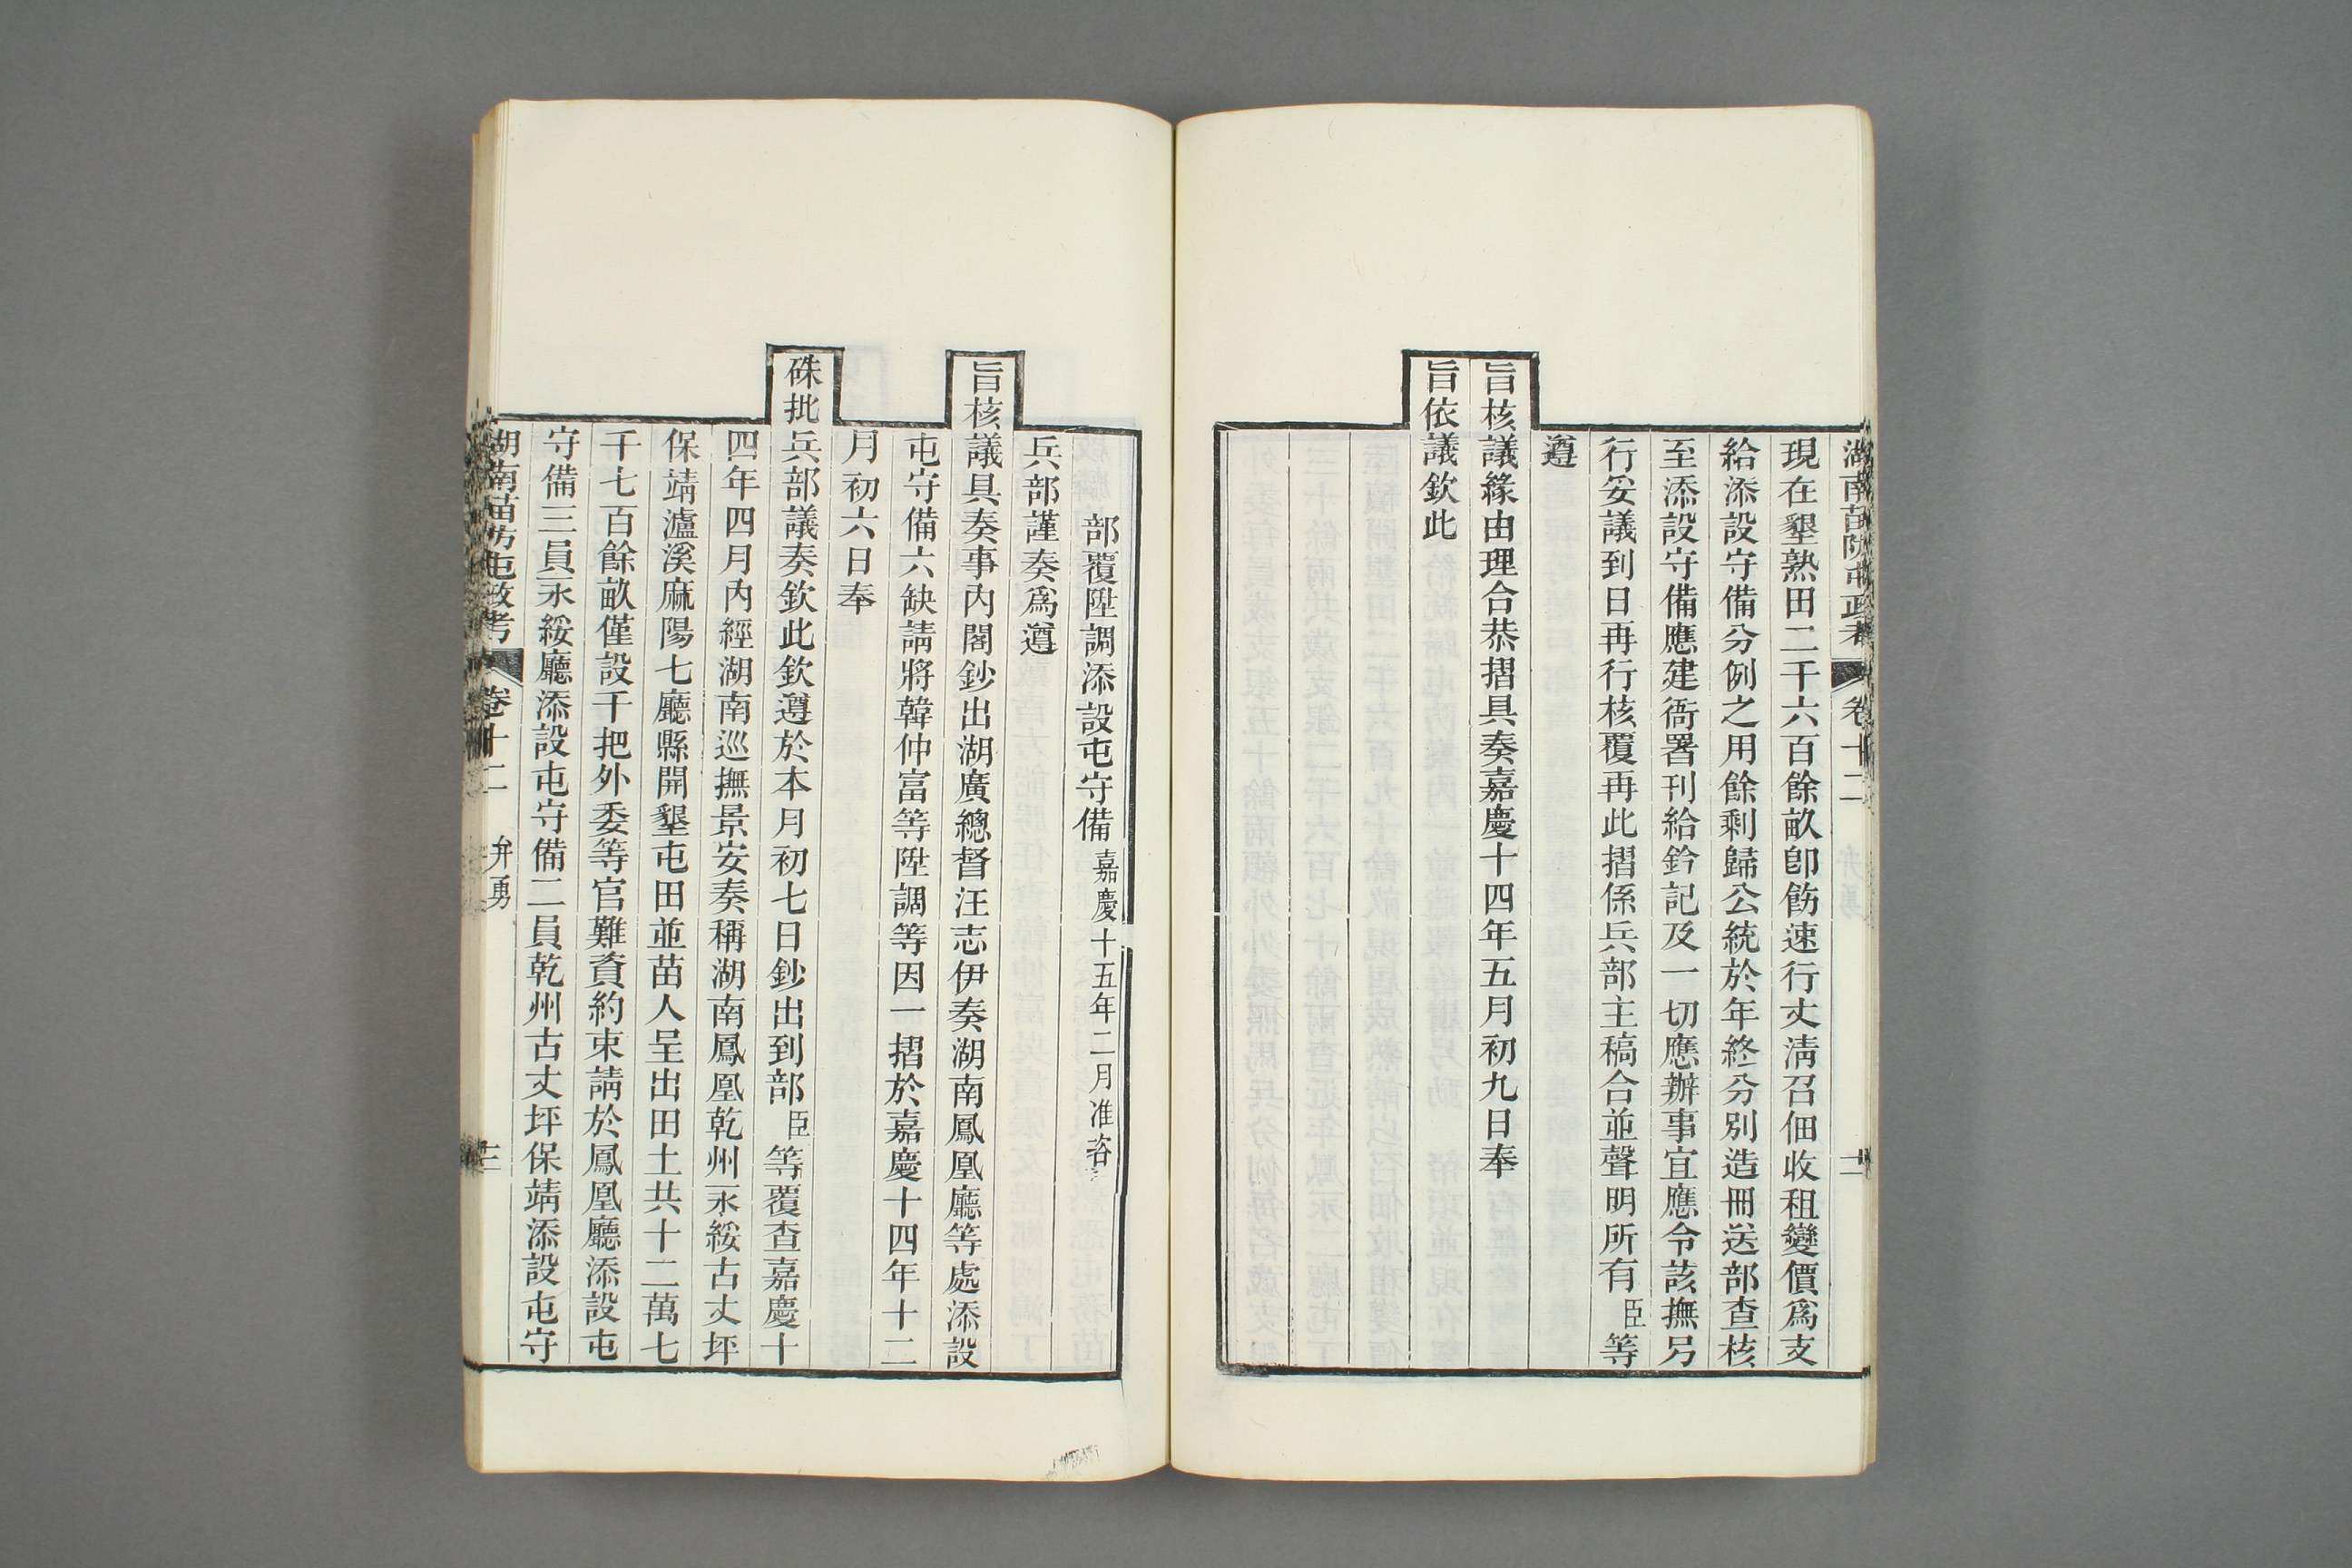 湖南苗防屯政考 卷十二 弁勇 二
現在墾熟田二千六百餘畝卽飭速行丈淸召佃收租變價爲支
給添設守備分例之用餘剩歸公統於年終分別造冊送部查核
至添設守備應建衙署刊給鈐記及一切應辦事宜應令該撫另
行妥議到日再行核覆再此摺係兵部主稿合並聲明所有臣等
遵
旨核議緣由理合恭摺具奏嘉慶十四年五月初九日奉
旨依議欽此
部覆陞調添設屯守備嘉慶十五年二月准咨
兵部謹奏爲遵
旨核議具奏事內閣鈔出湖廣總督汪志伊奏湖南鳳凰廳等處添設
屯守備六缺請將韓仲富等陞調等因一摺於嘉慶十四年十二
月初六日奉
硃批兵部議奏欽此欽遵於本月初七日鈔出到部臣等覆查嘉慶十
四年四月內經湖南巡撫景安奏稱湖南鳳凰乾州永綏古丈坪
保靖瀘溪麻陽七廳縣開墾屯田並苗人呈出田土共十二萬七
千七百餘畝僅設千把外委等官難資約束請於鳳凰廳添設屯
守備三員永綏廳添設屯守備二員乾州古丈坪保靖添設屯守
湖南苗防屯政考 卷十二 弁勇 三